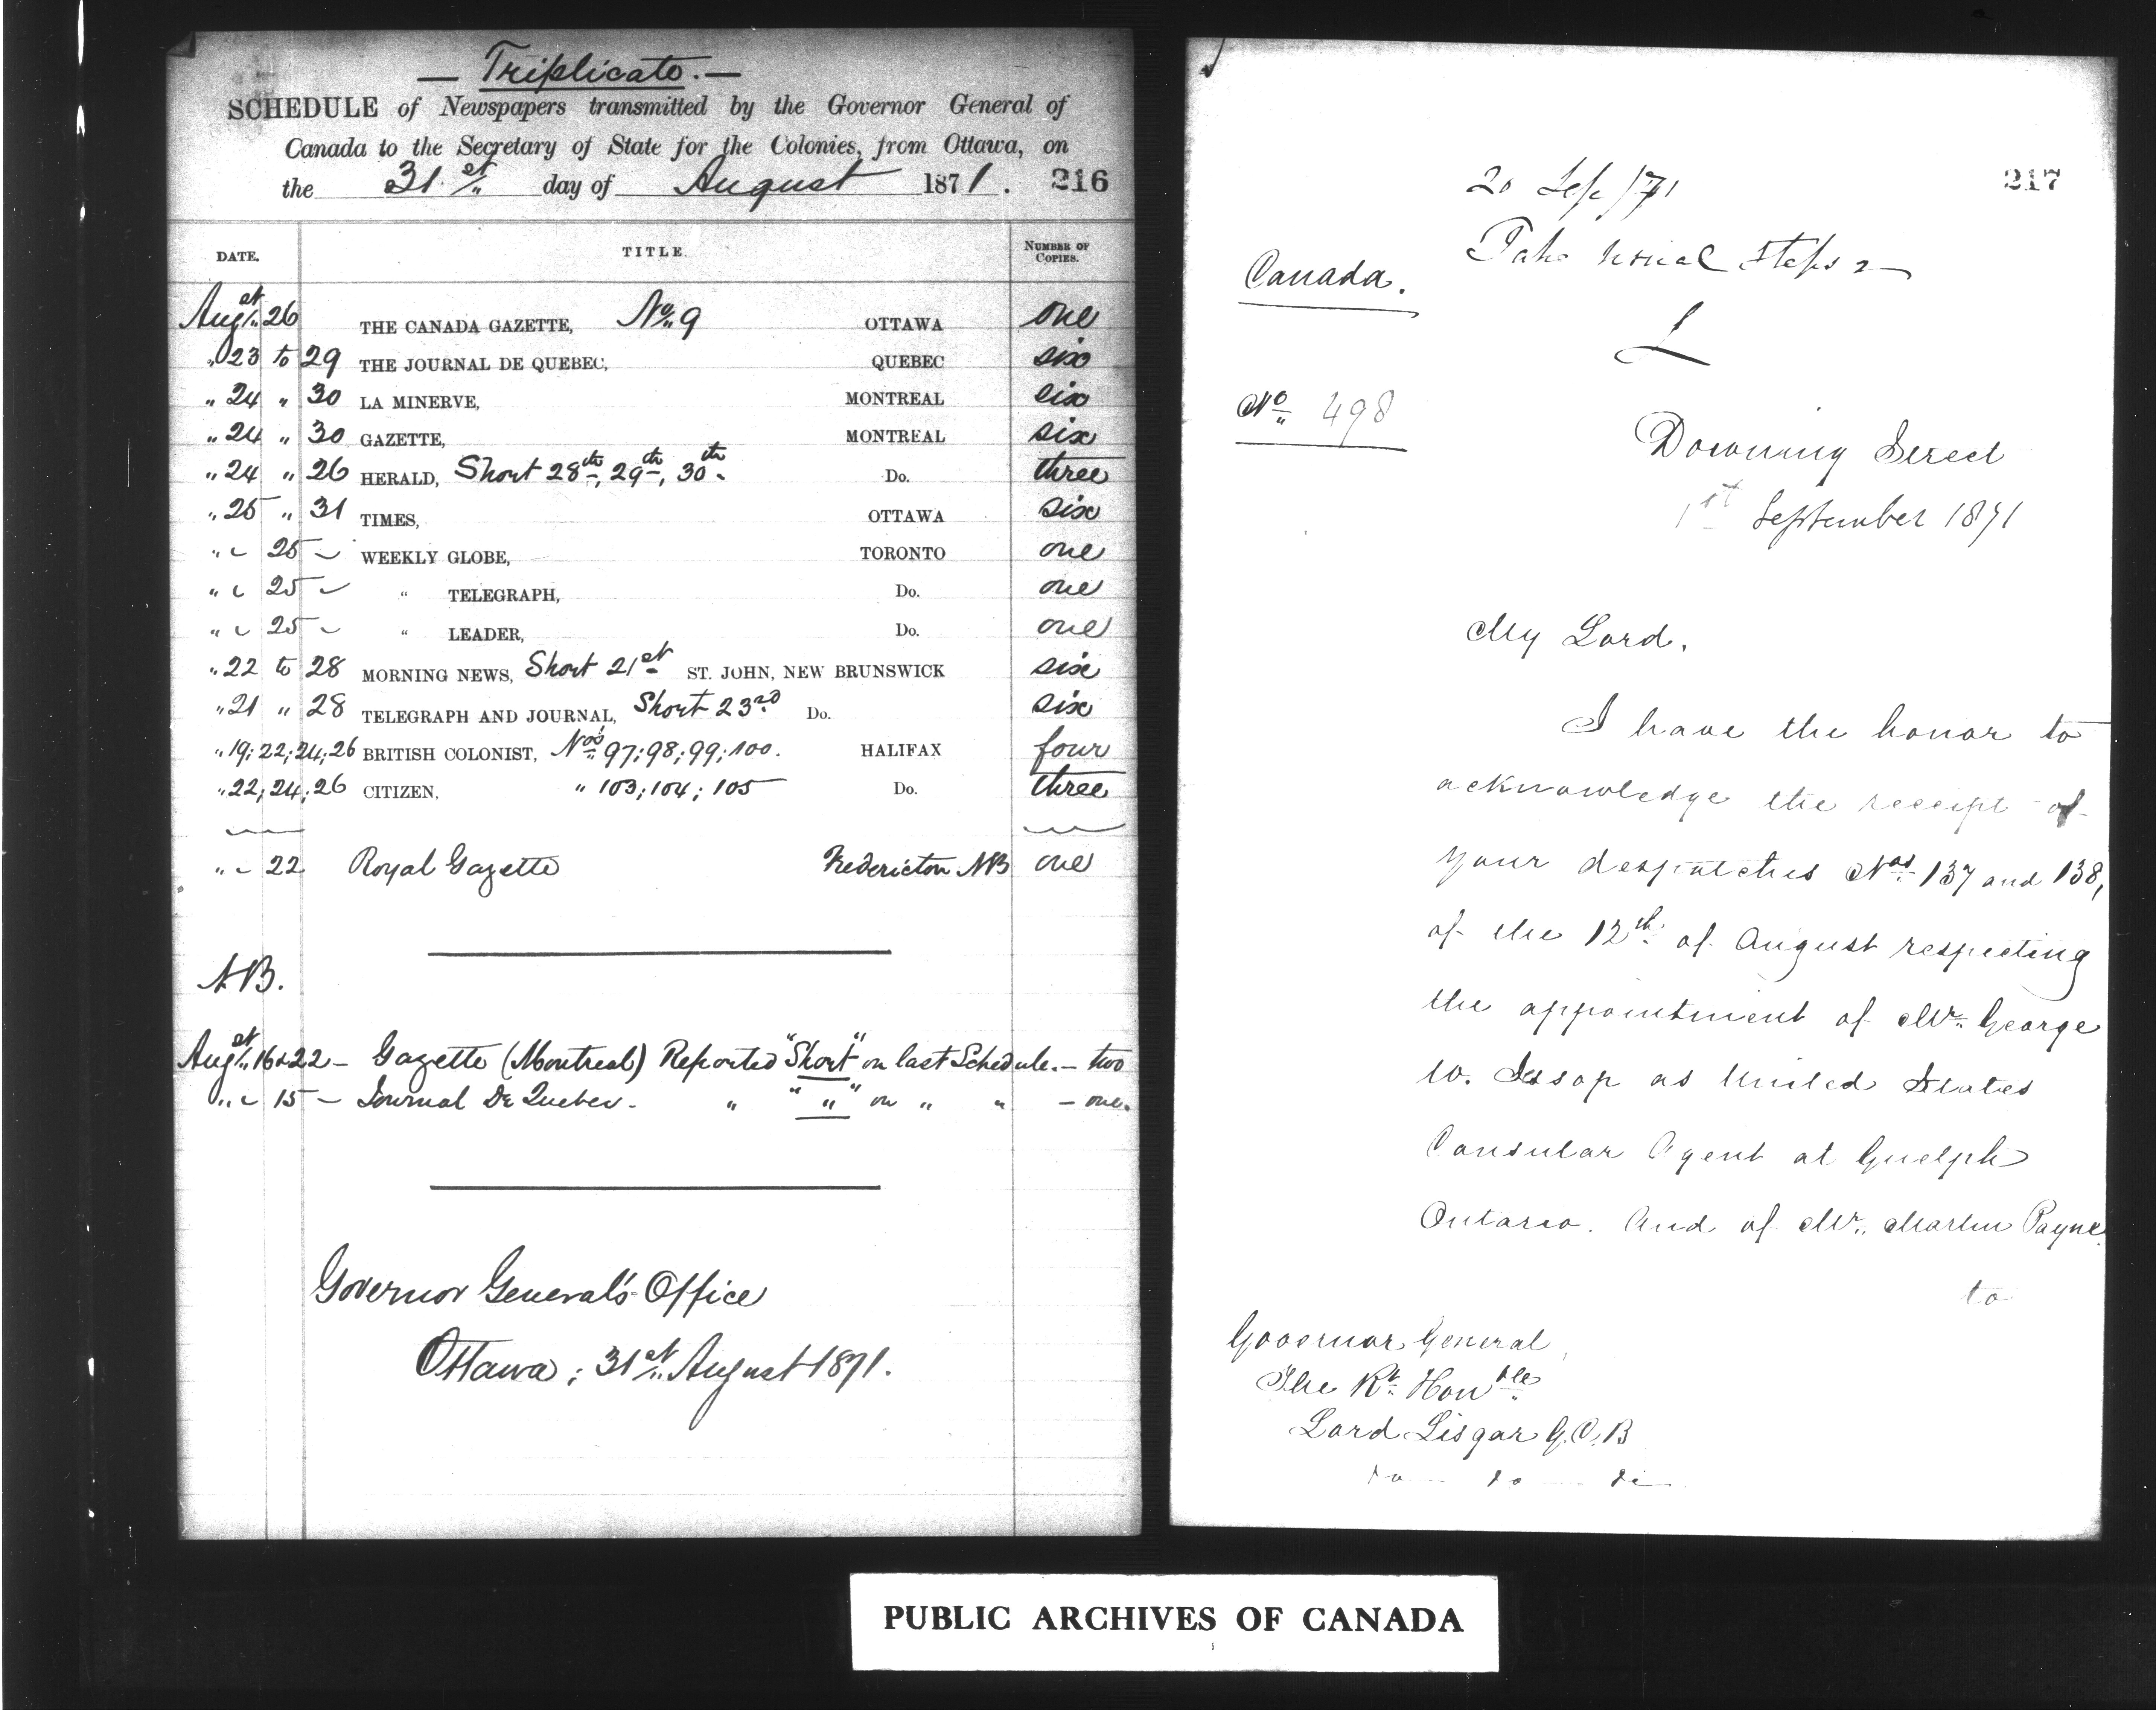 — Triplicate. —
SCHEDULE of Newspapers transmitted by the Governor General of
Canada to the Secretary of State for the Colonies, from Ottawa, on
the 31st day of August 1871. 216
DATE. TITLE. NUMBER OF COPIES.
Augst 26 THE CANADA GAZETTE, No 9 OTTAWA one
" 23 to 29 THE JOURNAL DE QUEBEC, QUEBEC six
" 24 " 30 LA MINERVE, MONTREAL six
" 24 " 30 GAZETTE, MONTREAL six
" 24 " 26 HERALD, Short 28th, 29th, 30th. Do. three
" 25 " 31 TIMES, OTTAWA six
" " 25 – WEEKLY GLOBE, TORONTO one
" " 25 – " TELEGRAPH, Do. one
" " 25 – " LEADER, Do. one
" 22 to 28 MORNING NEWS, Short 21st ST. JOHN, NEW BRUNSWICK six
" 21 " 28 TELEGRAPH AND JOURNAL, Short 23rd Do. six
" 19; 22; 24; 26 BRITISH COLONIST, Nos 97; 98; 99; 100. HALIFAX four
" 22; 24; 26 CITIZEN, " 103; 104; 105 Do. three
" " 22 Royal Gazette Fredericton NB one
NB.
Augst 16 & 22 – Gazette (Montreal) Reported "Short" on last Schedule. – two
" " 15 – Journal De Quebec. " " " " on " " – one.
Governor General's Office
Ottawa; 31st August 1871.
217
20 Sep /71
Take usual steps
L
Canada.
No 498
Downing Street
1st September 1871
My Lord.
I have the honor to
acknowledge the receipt of
your despatches Nos 137 and 138,
of the 12th of August respecting
the appointment of Mr. George
W. Jessop as United States
Consular Agent at Guelph
Ontario. And of Mr. Martin Payne
to
Governor General
The Rt. Honble
Lord Lisgar G.C.B
PUBLIC ARCHIVES OF CANADA